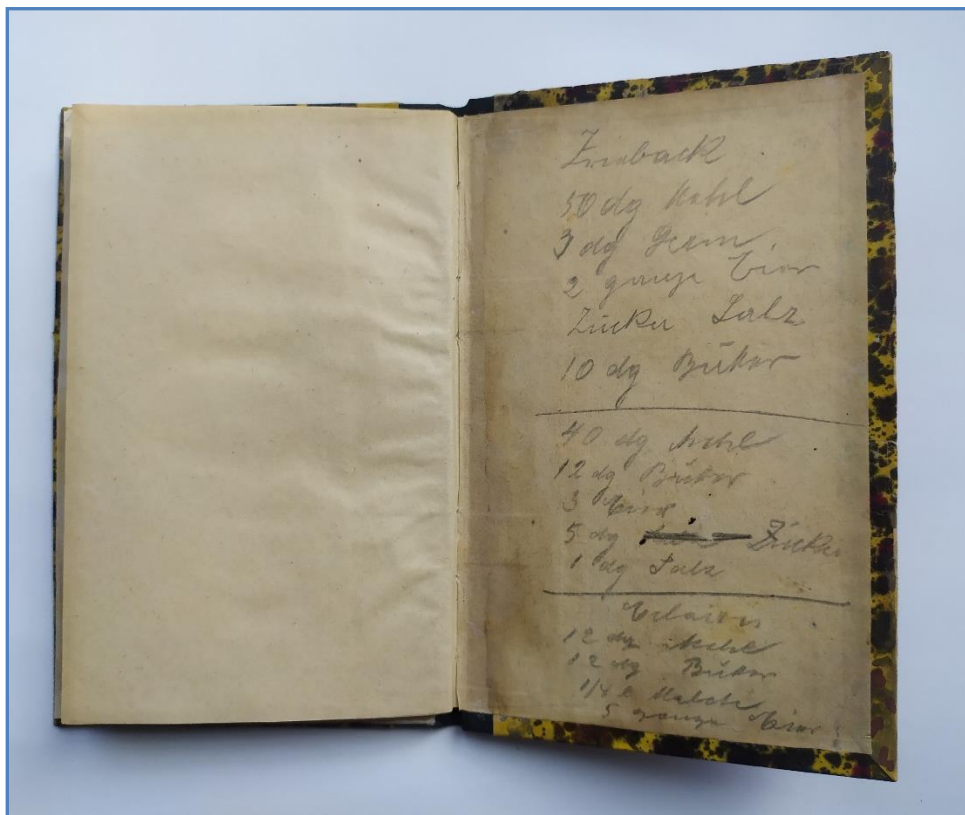 Zwieback
50 dg Mehl
3 dg Germ
2 ganze Eier
Zucker Salz
10 dg Butter
40 dg Mehl
12 dg Butter
3 Eier
5 dg Zucker
1 dg Salz
12 dg Mehl
12 dg Butter
1/4 l Milch
5 ganze Eier